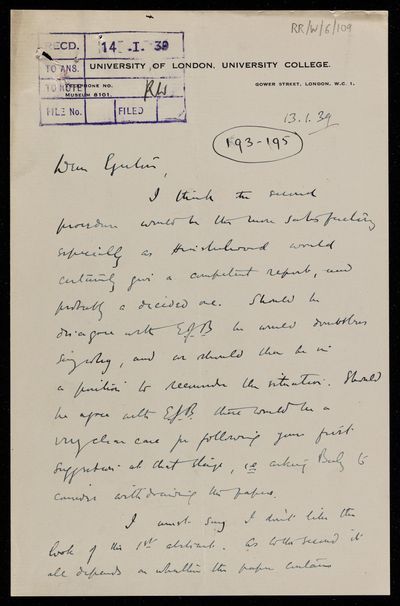 RR/W/6/109
RECD. 14 .I. 39
TO ANS.
UNIVERSITY OF LONDON, UNIVERSITY COLLEGE.
TO NOTE
TELEPHONE NO.
MUSEUM 8101.
GOWER STREET, LONDON, W.C. 1.
FILE No. FILED
13.1.39
193-195
Dear
I think the second
procedure would be the more satisfactory
especially as Hinshelwood would
certainly give a competent report, and
probably a decided one. Should he
disagree with EJB he would doubtless
say why, and we should then be in
a position to reconsider the situation. Should
he agree with EJB there would be a
very clear case for following your first
suggestion at that stage, i.e. asking to
consider withdrawing the papers.
I must say I don't like the
look of the 1st abstract. As to the second it
all depends on whether the paper contains